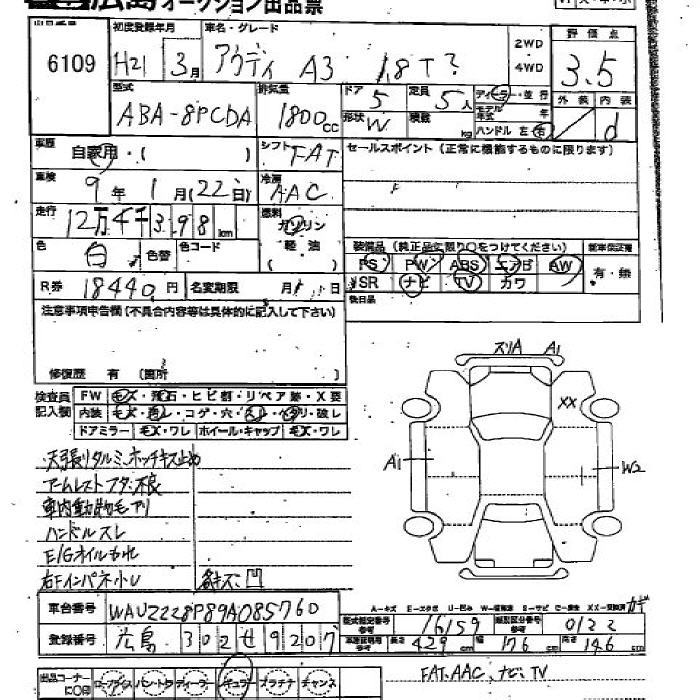 広島 オークション出品票
出品番号 6109
初度登録年月 H21 3月
車名・グレード アウディ A3 1.8T?
2WD 4WD
評価点 3.5
型式 ABA-8PCDA
排気量 1800cc
ドア 5 定員 5人
形状 W 積載 kg
ディーラー・並行
モデル年式 年
ハンドル 左・右
外装 内装 d
車歴 自家用・( )
シフト FAT
セールスポイント (正常に機能するものに限ります)
車検 9年 1月(22日)
冷房 AAC
走行 12万4千398km
燃料 ガソリン 軽油 ( )
色 白 色替 色コード
装備品 (純正品に限り○をつけてください) 新車保証書
PS PW ABS エアB AW 有・無
SR ナビ TV カワ
後日品
R券 18440円 名変期限 月 日
注意事項申告欄(不具合内容等は具体的に記入して下さい)
修復歴 有 (箇所
検査員記入欄
FW キズ・飛石・ヒビ割・リペア跡・X要
内装 キズ・汚レ・コゲ・穴・スレ・ヘタリ・破レ
ドアミラー キズ・ワレ ホイール・キャップ キズ・ワレ
ズリA A1
XX
A1
W2
天張りタルミ、ホッチキス止め
アームレストフタ不良
車内動物毛アリ
ハンドルスレ
E/Gオイルもれ
右Fインパネ小レ
各キズ凹
A-キズ E-エクボ U-凹み W-補修跡 S-サビ C-腐蝕 XX-交換済
車台番号 WAUZZZ8P89A085760
型式指定番号 参考 16159
類別区分番号 参考 0122
登録番号 広島 302 せ 9207
長さ 429cm 幅 176cm 高さ 146cm
出品コーナーに○印 ロープライス バントラ ディーラー プラチナ チャンス
FAT、AAC、ナビ、TV